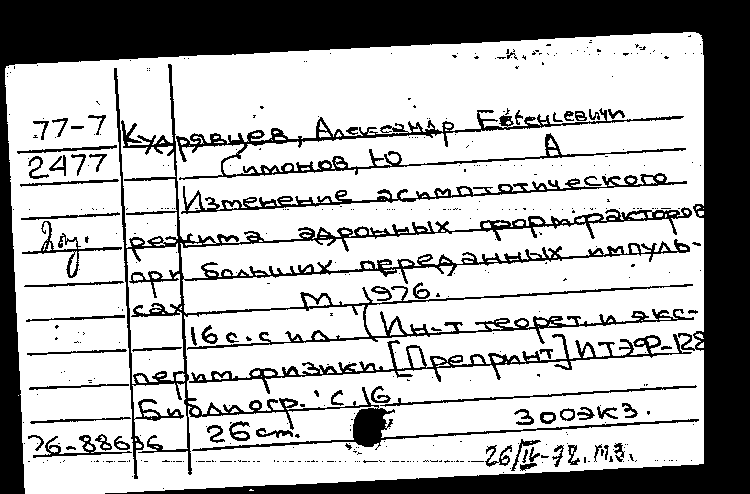 77-7 Кудрявцев, Александр Евгеньевич
2477 Симонов, Ю А
Изменение асимптотического
режима адронных формфакторов
при больших переданных импуль-
сах М., 1976.
16 с. с ил. (Ин-т теорет. и экс-
перим. физики. [Препринт] ИТЭФ-128
Библиогр.: с. 16.
76-88636 26 см. 300экз.